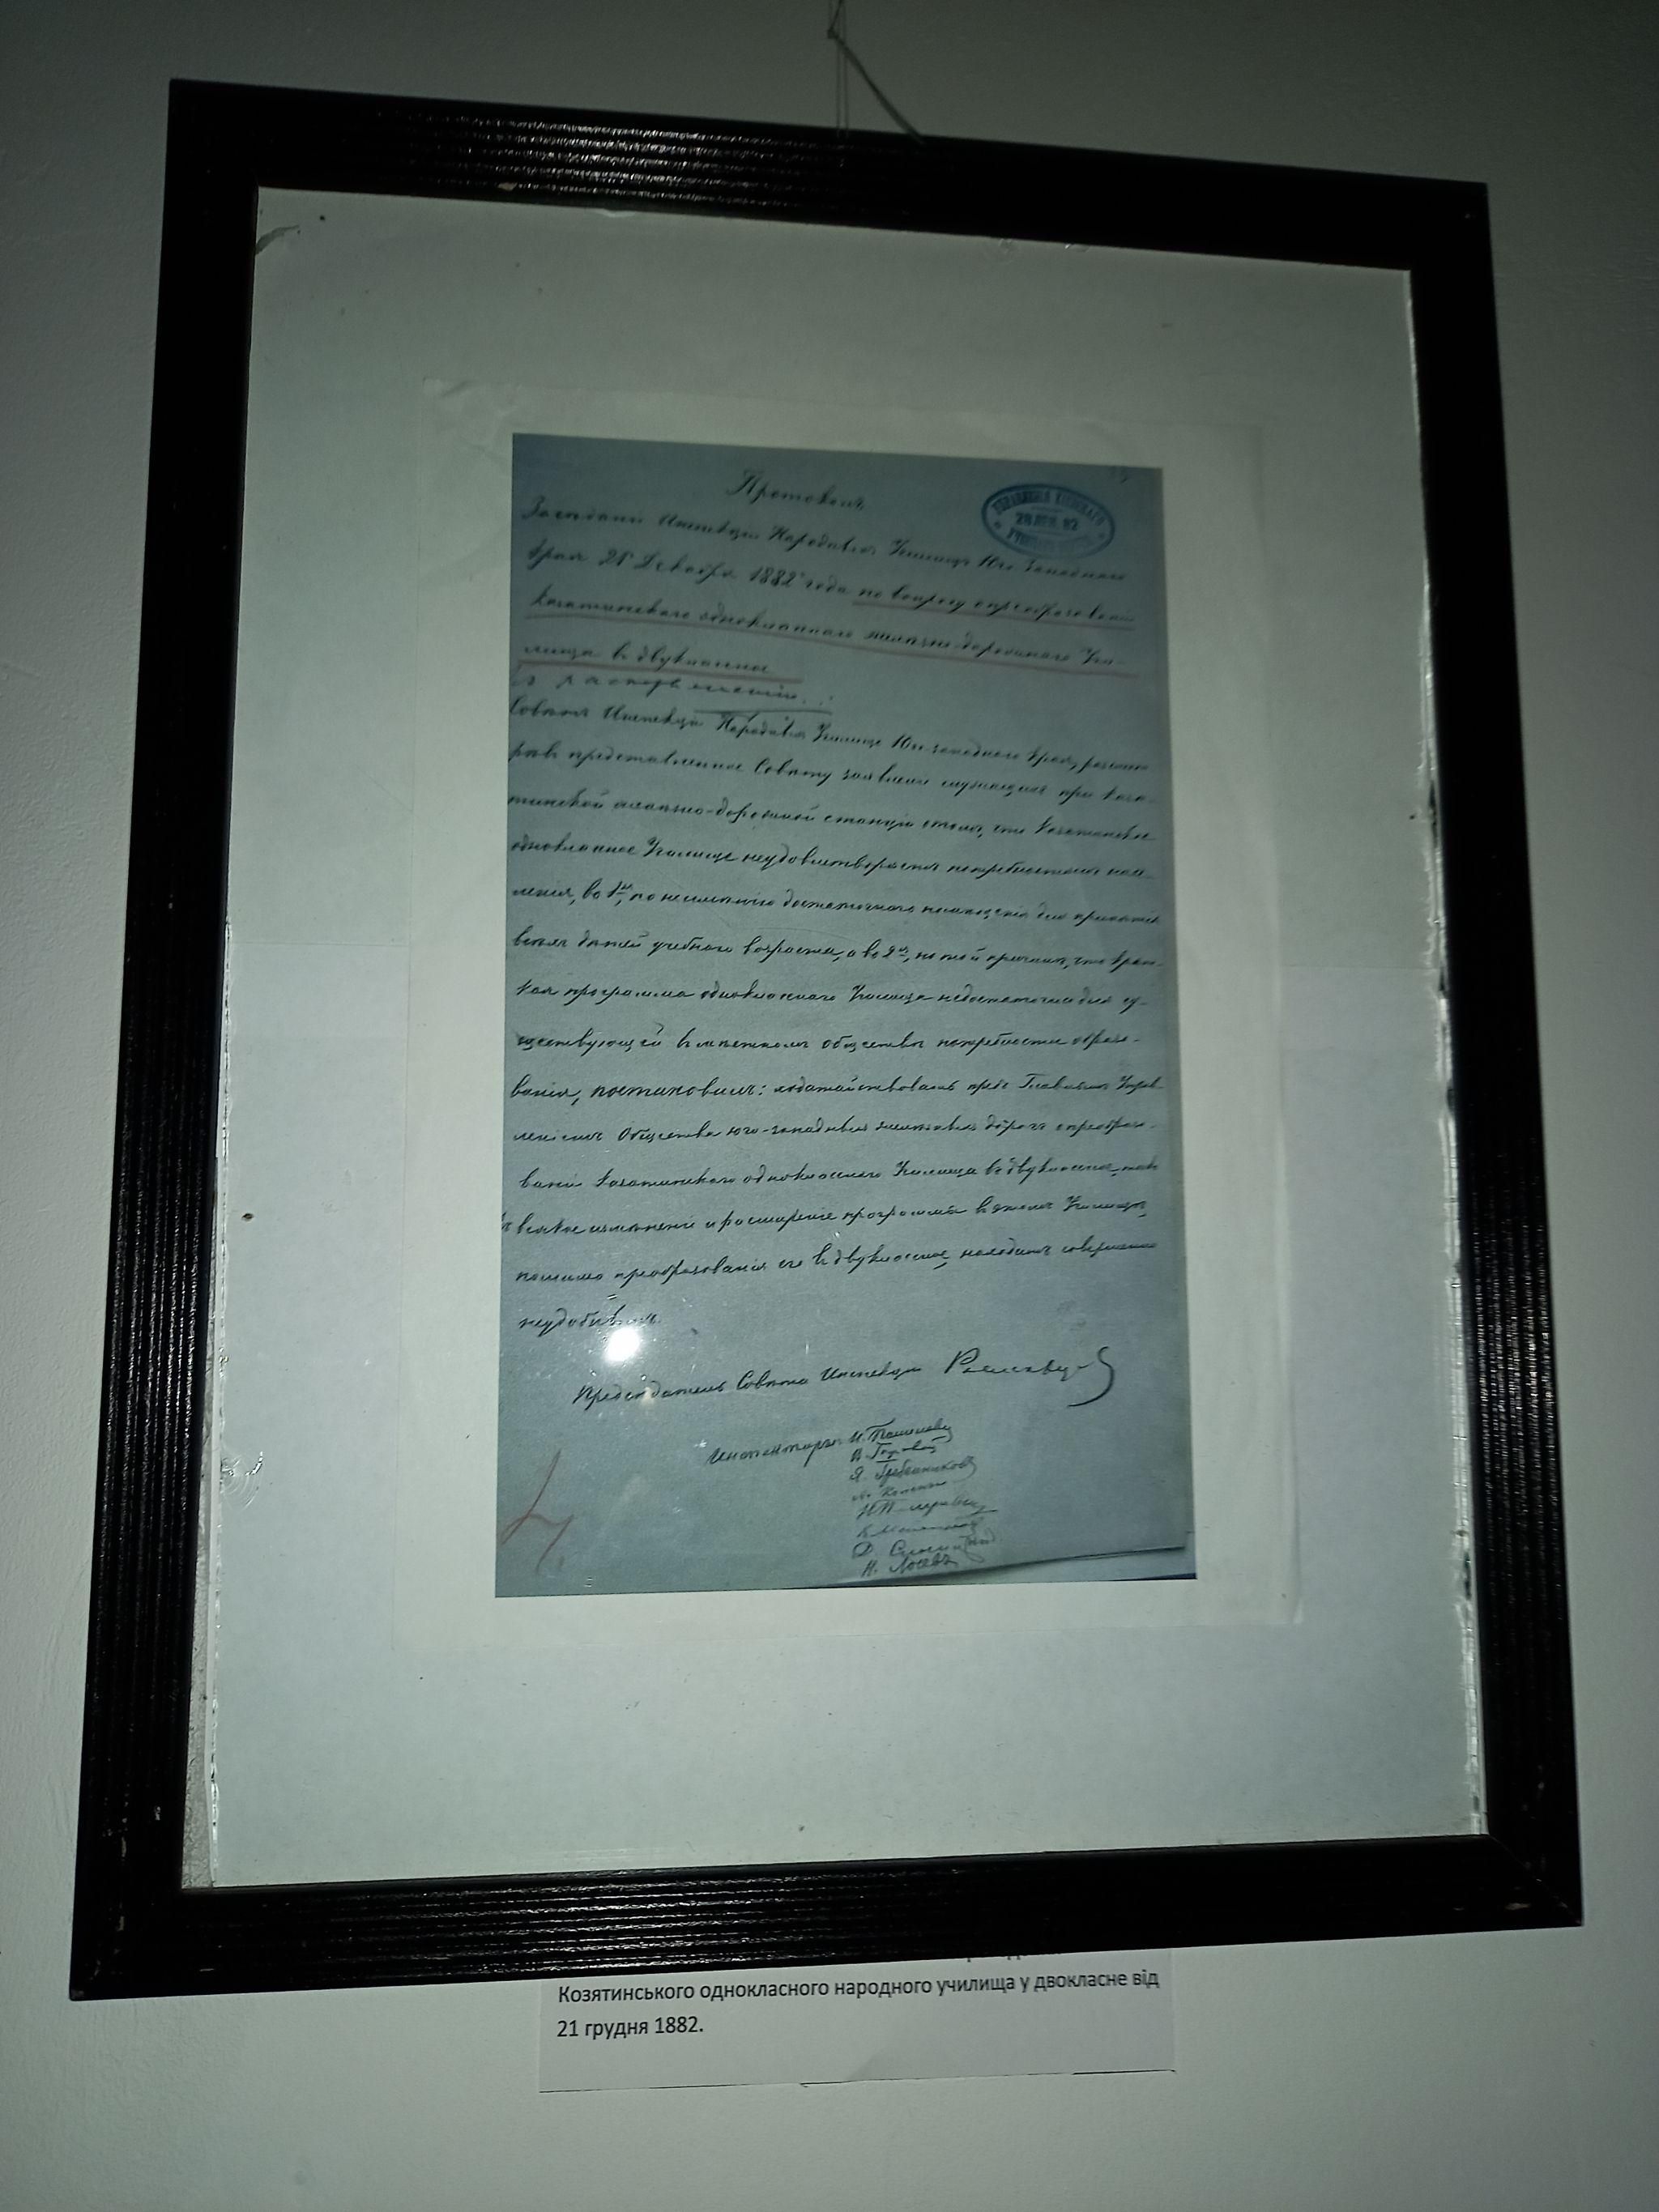 Протоколъ
28 ДЕК. 82
Заседанія Инспекціи Народныхъ Училищъ Юго-Западнаго
Края 21 Декабря 1882 года по вопросу о преобразованіи
Казатинскаго одноклассного желѣзно-дорожнаго Учи-
лища въ двуклассное
Совѣтъ Инспекціи Народныхъ Училищъ Юго-западного Края, разсмот-
рѣвъ представленное Совѣту заявленіе служащихъ при Каза-
тинской желѣзно-дорожной станціи о томъ, что Казатинское
одноклассное Училище неудовлетворяетъ потребностямъ насе-
ленія, во 1хъ, по неимѣнію достаточного помѣщенія для принятія
всѣхъ дѣтей учебного возраста, а во 2хъ, по той причинѣ, что крат-
кая программа одноклассного Училища недостаточна для су-
ществующей въ мѣстномъ обществѣ потребности образо-
ванія, постановилъ: ходатайствовать предъ Главнымъ Управ-
леніемъ Общества юго-западныхъ желѣзныхъ дорогъ о преобразо-
ваніи Казатинского одноклассного Училища въ двуклассное, такъ
какъ всякое измѣненіе и расширеніе программы въ этомъ Училищѣ,
помимо преобразованія его въ двуклассное, находитъ совершенно
неудобнымъ.
Предсѣдатель Совѣта Инспекціи
Инспекторы:
Я. Гребенниковъ
Н. Лосевъ
Козятинського однокласного народного училища у двокласне від
21 грудня 1882.